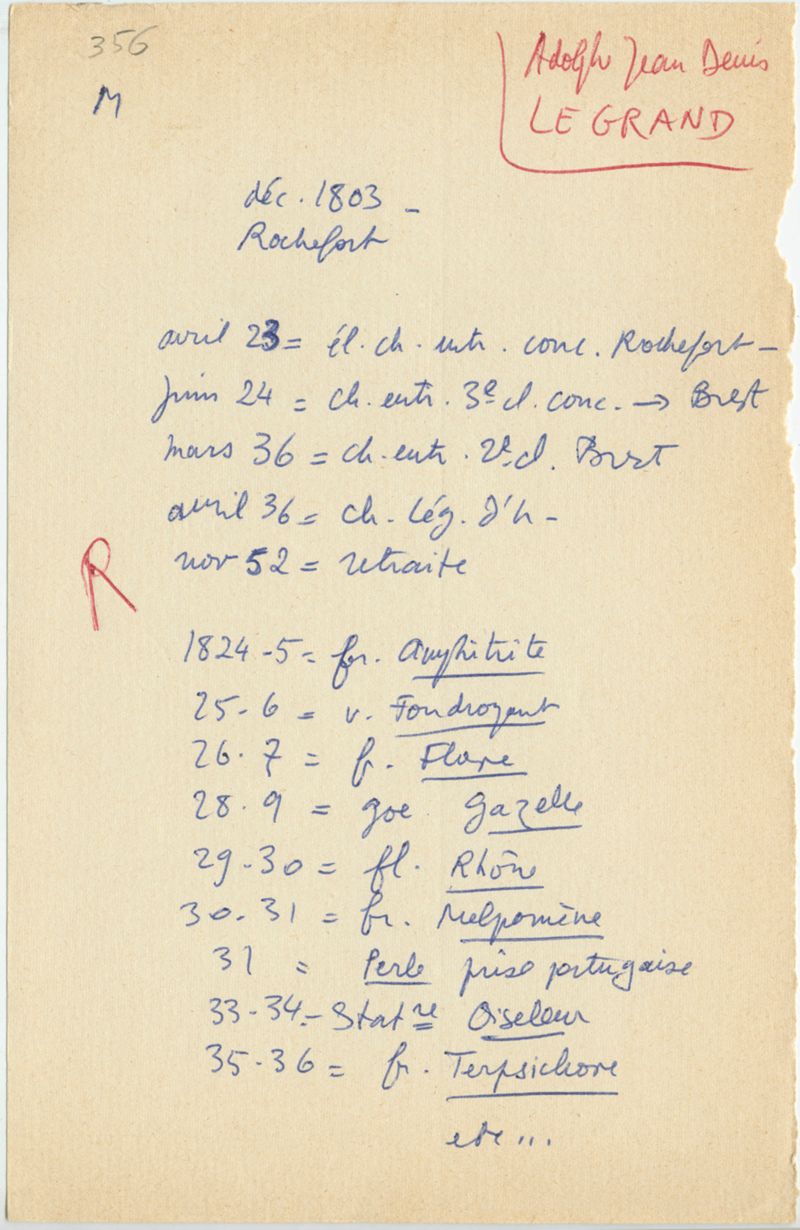 356
M
Adolphe Jean Denis
LE GRAND
déc. 1803 -
Rochefort
avril 23 = él. ch. entr. conc. Rochefort -
juin 24 = ch. entr. 3e cl. conc. → Brest
mars 36 = ch. entr. 2e cl. Brest
avril 36 = ch. Lég. d'h -
R
nov 52 = retraite
1824-5 = fr. Amphitrite
25-6 = v. Foudroyant
26-7 = fr. Flore
28-9 = goe Gazelle
29-30 = fl. Rhône
30-31 = fr. Melpomène
31 = Perle prise portugaise
33-34 - Statre Oiseleur
35-36 = fr. Terpsichore
etc...